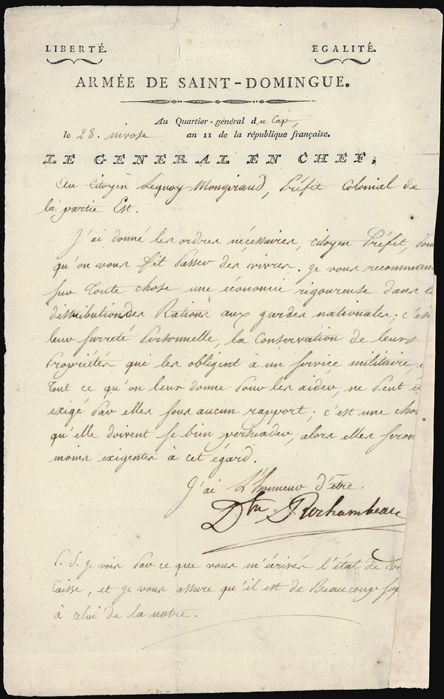 LIBERTÉ. EGALITÉ.
ARMÉE DE SAINT-DOMINGUE.
Au Quartier-général du Cap,
le 28. nivose an 11 de la république française.
LE GÉNÉRAL EN CHEF,
Au Citoyen Lequoy Mongiraud, Préfet Colonial de
la partie Est.
J'ai donné les ordres nécessaires, Citoyen Préfet, pour
qu'on vous fit passer des vivres. Je vous recommande
sur toute chose une économie rigoureuse dans la
distribution des Rations aux gardes nationales; c'est
leur sureté Personnelle, la Conservation de leurs
Propriétés qui les obligent à un service militaire.
Tout ce qu'on leur donne pour les aider, ne peut être
exigé par elles sous aucun rapport; c'est une chose
qu'elle doivent se bien persuader, alors elles seront
moins exigentes à cet égard.
J'ai l'honneur d'être
Dtn Rochambeau
P. S. je vois par ce que vous m'écrivez l'état de
Caisse, et je vous assure qu'il est de Beaucoup
à celui de la notre.